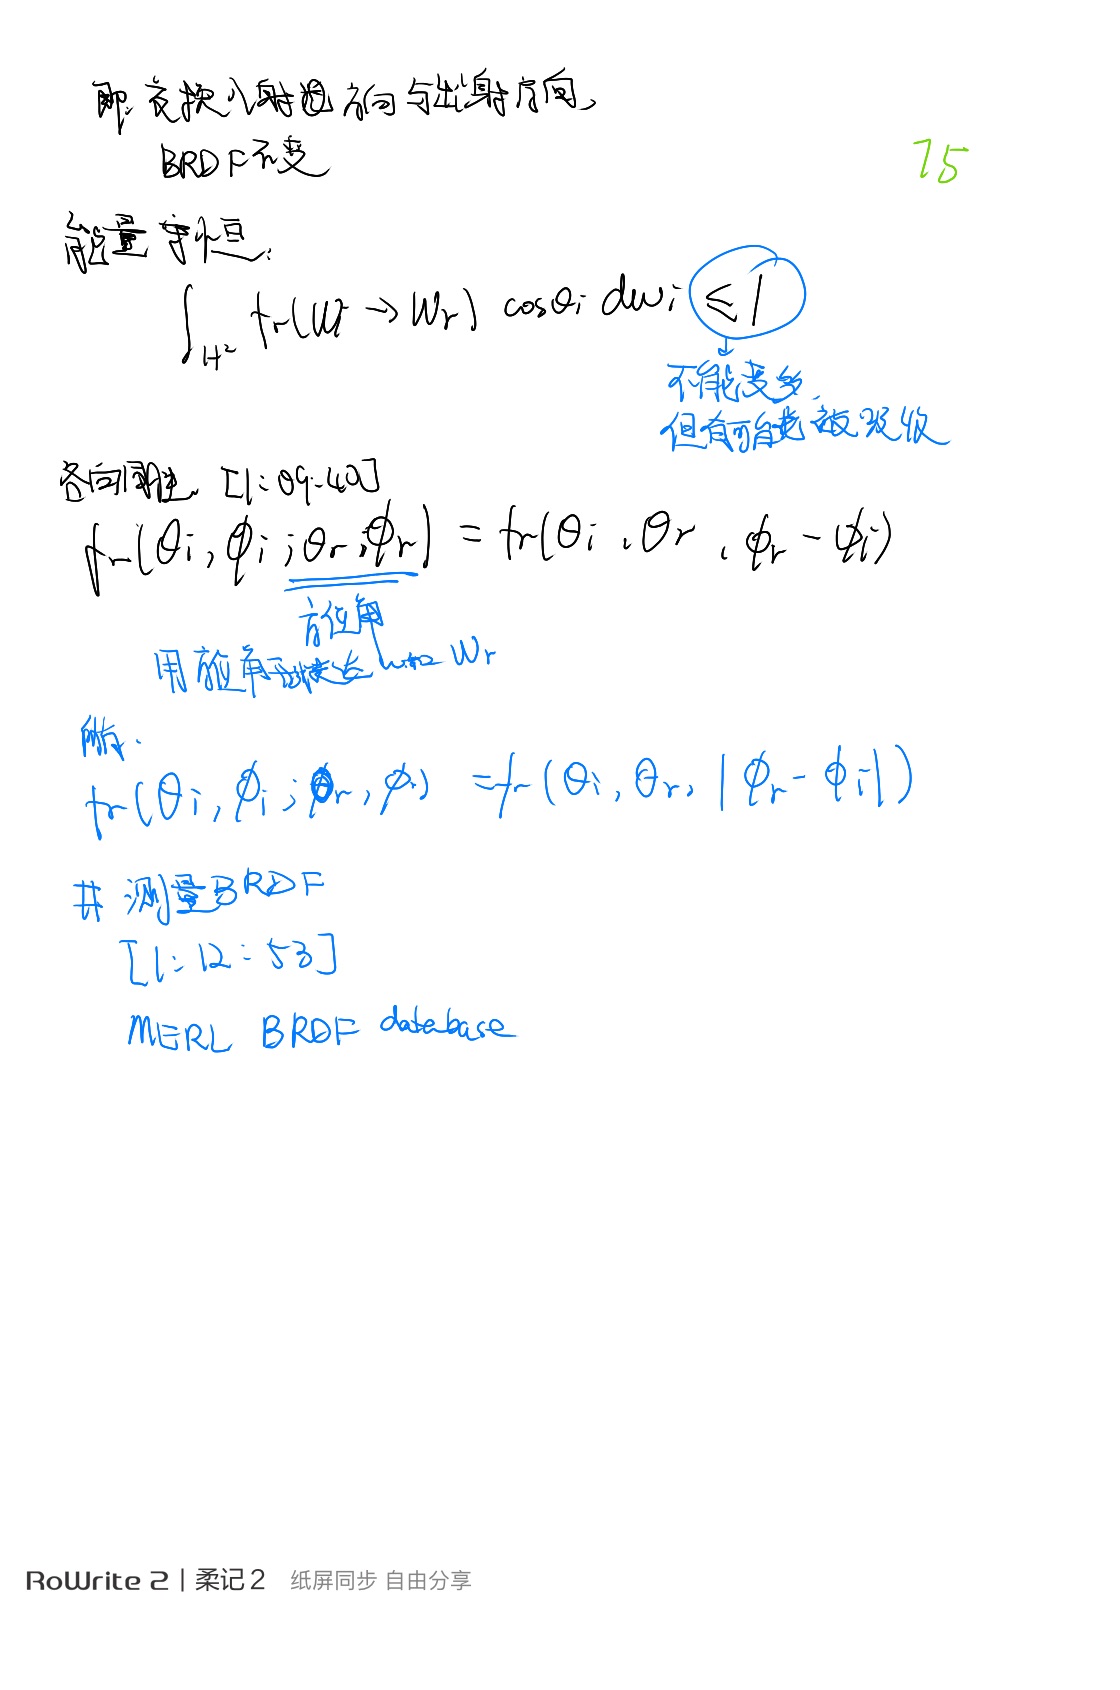 即交换入射方向与出射方向,
BRDF不变
75
能量守恒:
∫_{H²} fr(wi → wr) cosθi dwi ≤ 1
不能变多,
但有可能被吸收
各向同性 [1:09:40]
fr(θi, φi; θr, φr) = fr(θi, θr, φr - φi)
方位角
用方位角表达 wi和 wr
所有.
fr(θi, φi; θr, φr) = fr(θi, θr, |φr - φi|)
# 测量BRDF
[1:12:53]
MERL BRDF database
RoWrite 2 | 柔记 2 纸屏同步 自由分享